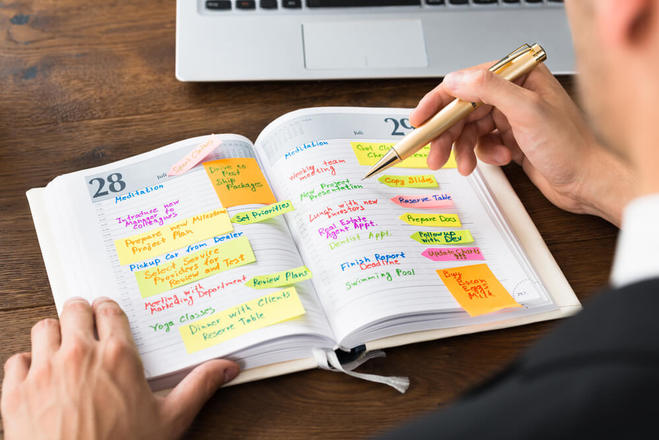 28
Juli
Sport Center
Meditation
Drive to
Post
Ship
Packages
Introduce new
Manager to
colleagues
Set Priorities
Prepare new Milestone
Project Plan
Pickup Car from Dealer
Select Service
Providers for
Review and Test
Review Plans
Meeting with
Marketing Department
Yoga Classes
Dinner with Clients
Reserve Table
Juli
29
Meditation
Weekly team
meeting
Copy Slides
New Project
Presentation
Reserve Table
Lunch with new
Investors
Prepare Docs
Real Estate
Agent Appt.
Dentist Appt.
Follow up
with Dev
Update Charts
Finish Report
Deadline
Swimming Pool
Buy:
Bacon
Eggs
Milk